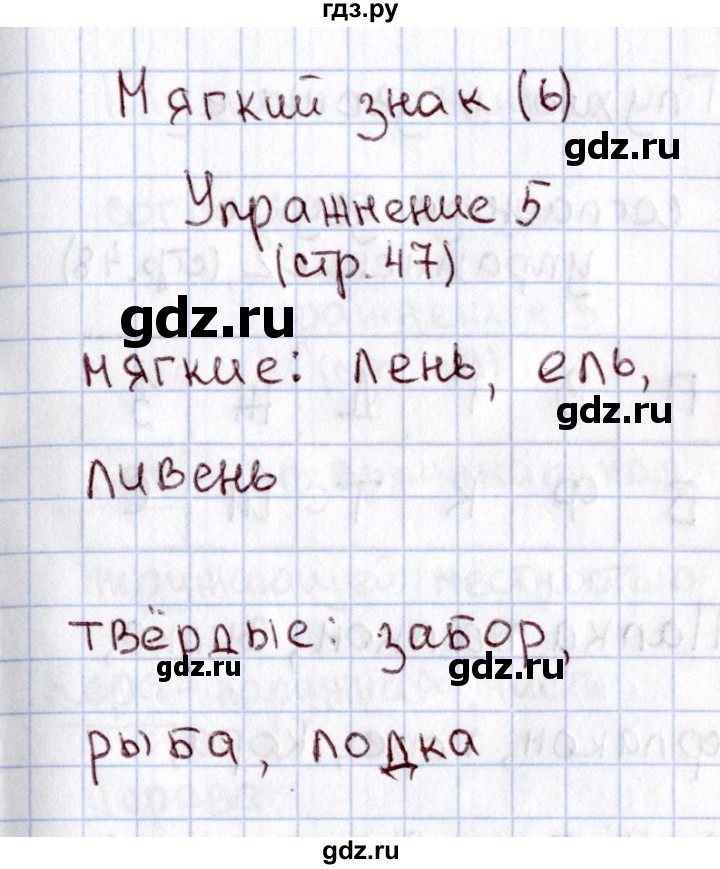 гдз.ру
Мягкий знак (ь)
gdz.ru
Упражнение 5
(стр. 47)
gdz.ru
мягкие: лень, ель,
gdz.ru
ливень
твёрдые: забор,
gdz.ru
gdz.ru
рыба, лодка
gdz.ru